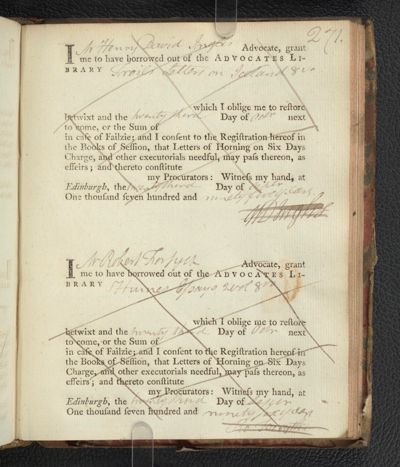 271.
I Mr Henry David Inglis Advocate, grant
me to have borrowed out of the ADVOCATES LI-
BRARY Troil's Letters on Iceland 8vo
which I oblige me to restore
betwixt and the twenty third Day of next
to come, or the Sum of
in case of Failzie; and I consent to the Registration hereof in
the Books of Session, that Letters of Horning on Six Days
Charge, and other executorials needful, may pass thereon, as
effeirs; and thereto constitute
my Procurators: Witness my hand, at
Edinburgh, the twenty third Day of
One thousand seven hundred and ninety years
I Mr Robert Forsyth Advocate, grant
me to have borrowed out of the ADVOCATES LI-
BRARY Humes Essays 2 vol 8vo
which I oblige me to restore
betwixt and the twenty third Day of next
to come, or the Sum of
in case of Failzie; and I consent to the Registration hereof in
the Books of Session, that Letters of Horning on Six Days
Charge, and other executorials needful, may pass thereon, as
effeirs; and thereto constitute
my Procurators: Witness my hand, at
Edinburgh, the twenty third Day of
One thousand seven hundred and ninety years